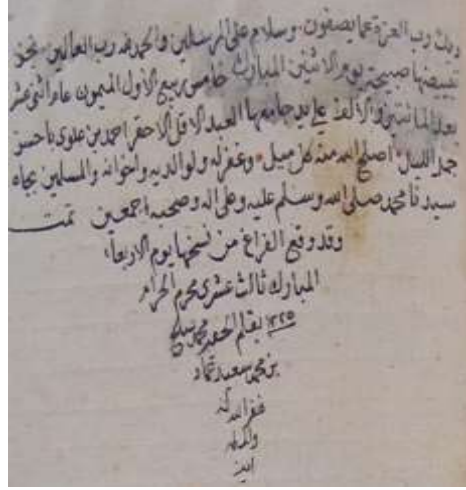 ربك رب العزة عما يصفون وسلام على المرسلين والحمد لله رب العالمين نجز
تبييضها صبيحة يوم الاثنين المبارك خامس ربيع الاول الميمون عام اثني عشر
بعد المائتين والالف على يد جامعها العبد الاقل الاحقر احمد بن علوي باحسن
جمل الليل اصلح الله منه كل ميل وغفر له ولوالديه واخوانه والمسلمين بجاه
سيدنا محمد صلى الله وسلم عليه وعلى اله وصحبه اجمعين تمت
وقد وقع الفراغ من نسخها يوم الاربعاء
المبارك ثالث عشري محرم الحرام
١٢٢٥ بقلم الحقير محمد
بن محمد سعيد
غفر الله له
ولوالديه
امين